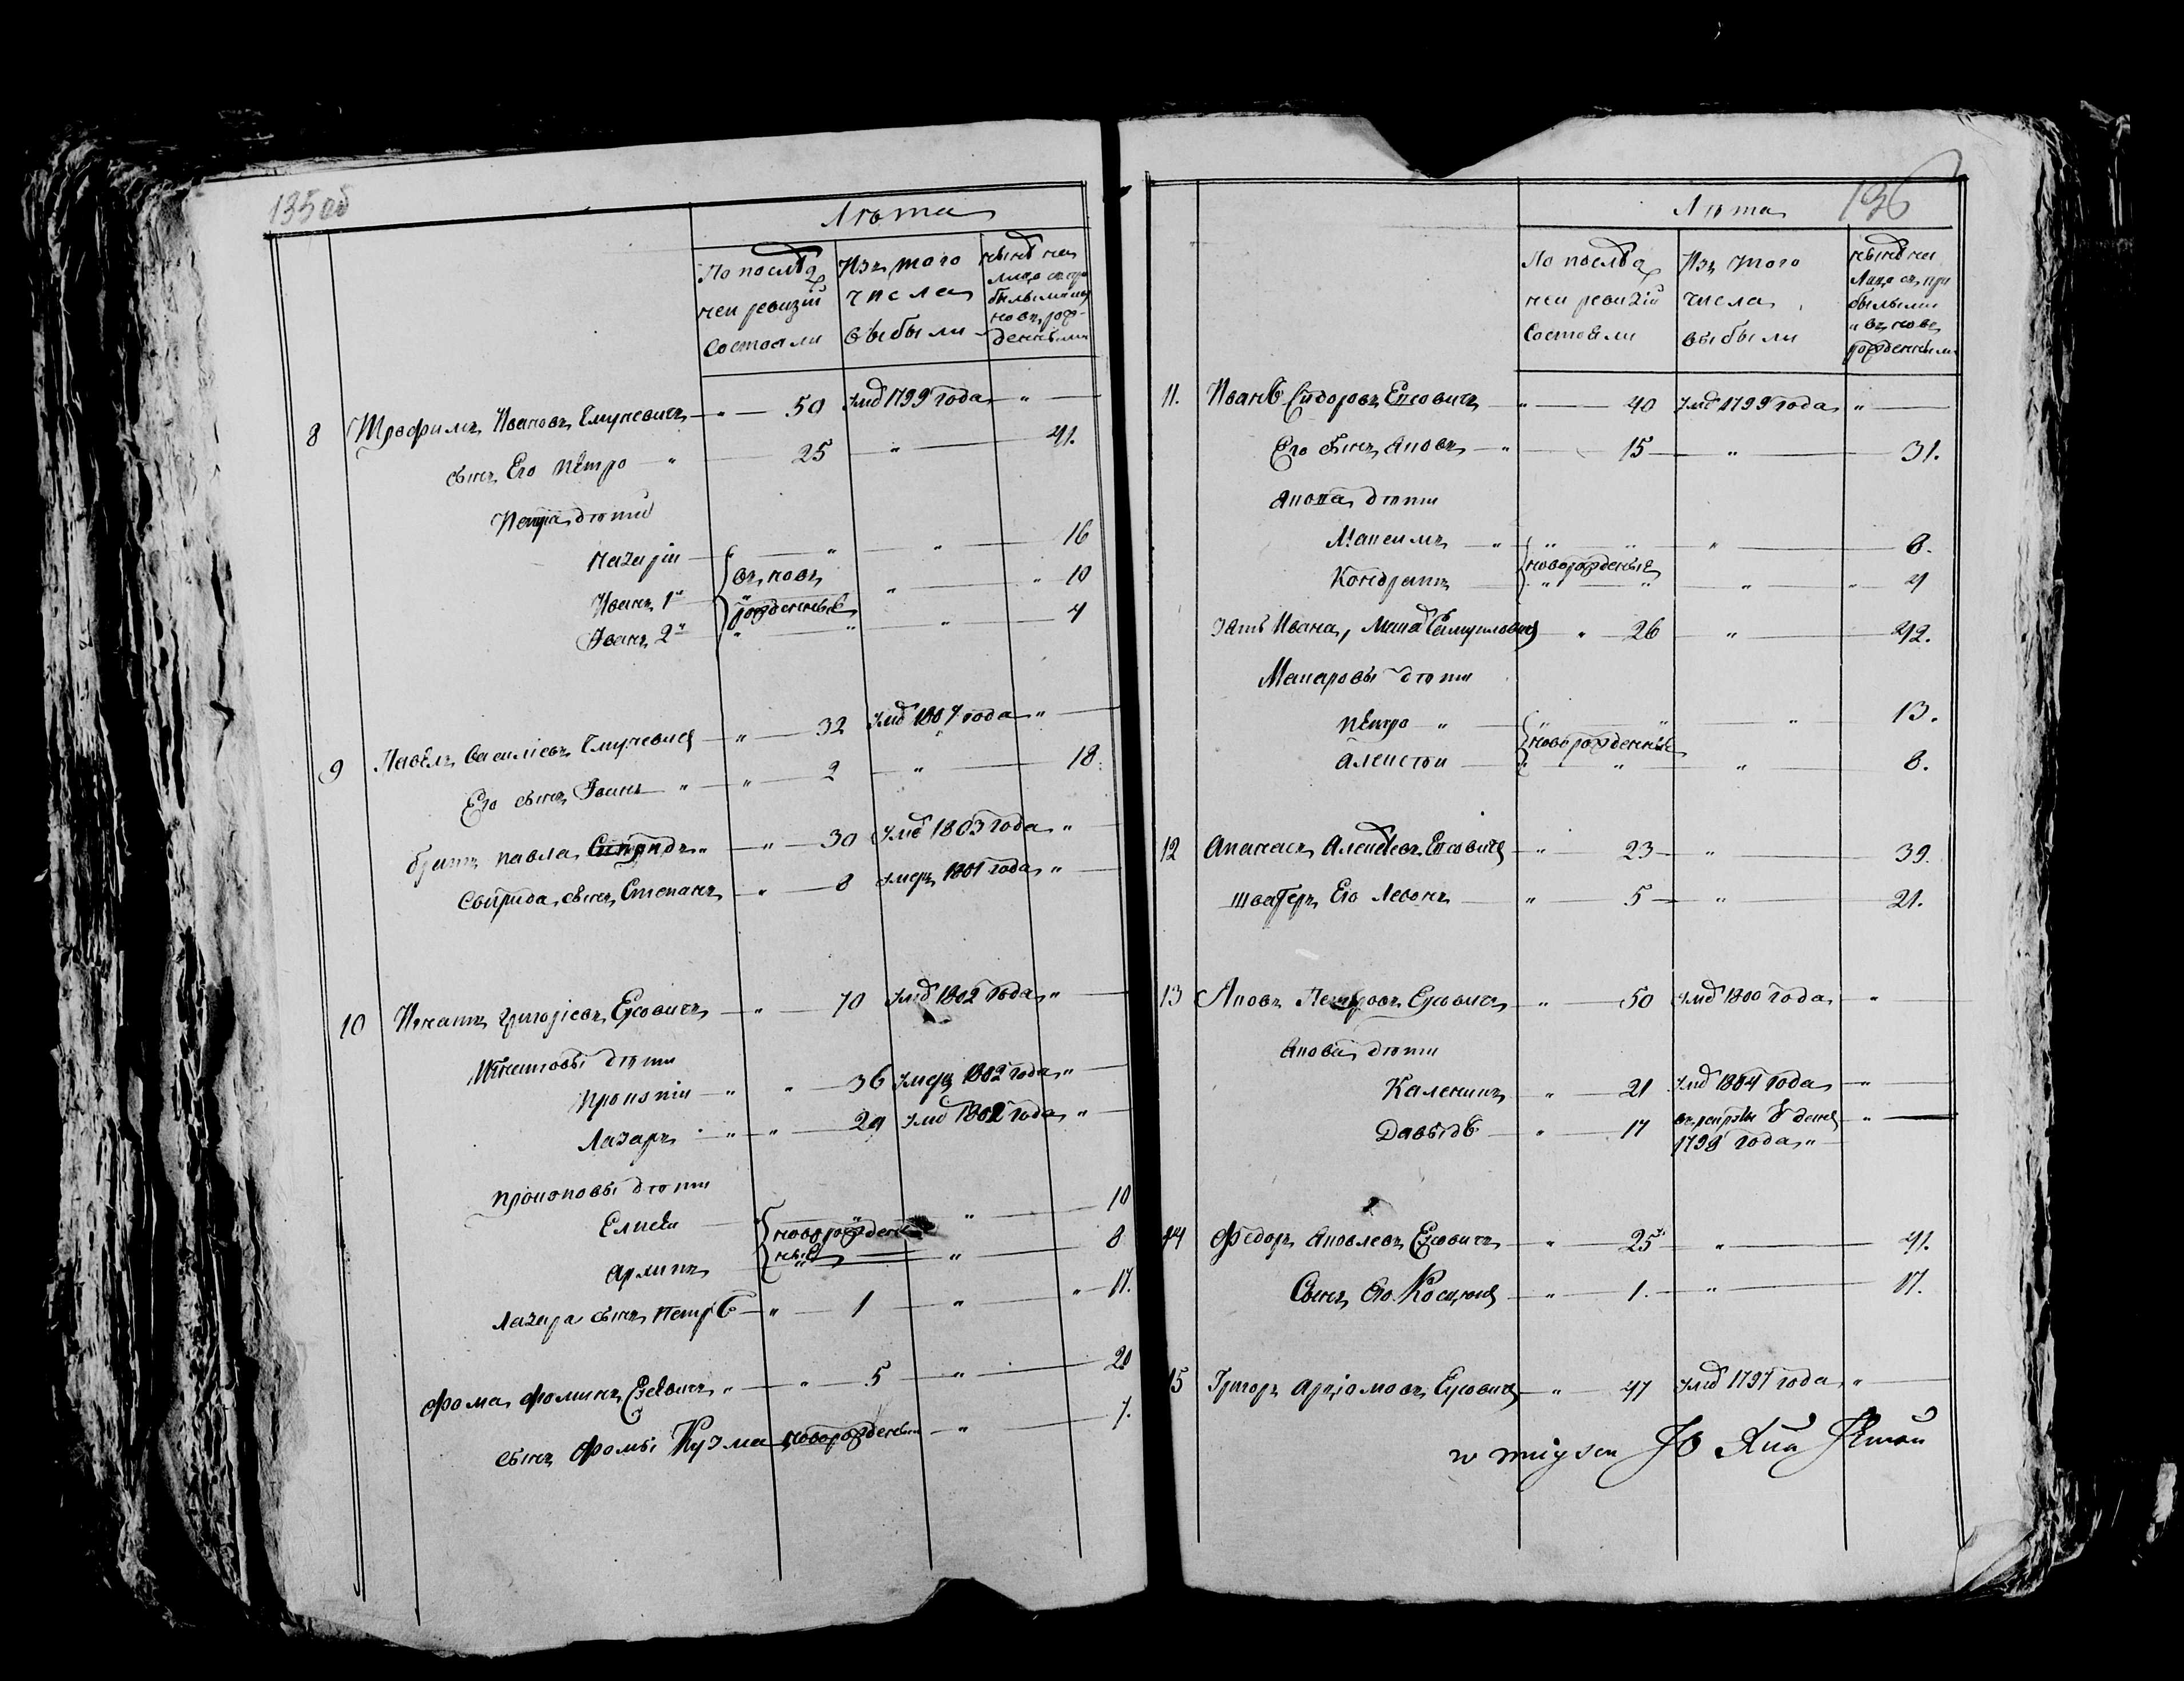 135 об
Лѣта
По послѣд
ней ревизіи
состояли
Изъ того
числа
выбыли
нынѣ на
лицо съ при
былыми и
новъ рож-
денными
8 Трофимъ Ивановъ " 50 умѣ 1799 года "
сынъ Его Петро " 25 " 41.
Петра дѣти
Назарій " " 16
Иванъ 1й въ новь " " 10
Иванъ 2й рожденные " " 4
9 Павелъ Василіевъ " 32 умѣ 1807 года "
Его сынъ Іванъ " " 2 " 18.
братъ Павла " 30 умѣ 1803 года "
Свирида сынъ Степанъ " 8 умеръ 1801 года "
10 Игнатъ Григоріевъ Есовичъ " 70 умѣ 1802 года "
Игнатовы дѣти
Прокопій " " 36 умеръ 1802 года "
Лазаръ " " 29 умѣ 1802 года "
Прокоповы дѣти
Елисей новорожден " 10
ные " 8
Лазара сынъ Петръ " 1 " " 17.
Фома Фоминъ " " 5 " 20
сынъ Фомы Кузма новорожденный " 7.
136
Лѣта
По послѣд
ней ревизіи
состояли
Изъ того
числа
выбыли
нынѣ на
лицо съ при
былыми
и въ новь
рожденными
11. Иванъ Сидоровъ Есовичъ " 40 умѣ 1799 года "
Его сынъ Яковъ " 15 " 31.
Якова дѣти
Максимъ " " " " 8.
новорожденые
Кондратъ " " " " 4
зять Ивана, " 26 " 42.
Макаровы дѣти
Петро " " " " 13.
новорожденные
Алексѣй " " " 8.
12 Апанасъ Алексѣевъ Есовичъ " 23 " 39.
швагеръ Его Левонъ " 5 " 21.
13 Яковъ Петровъ Есовичъ " 50 умѣ 1800 года "
Якова дѣти
Каленикъ " 21 умѣ 1804 года "
Давыдъ " 17 въ рекруты
1798 года "
14 Федоръ Яковлевъ Есовичъ " 25 " 41.
Сынъ Его " 1. " 17.
15 Григоръ Арціомовъ Есовичъ " 47 умѣ 1797 года "